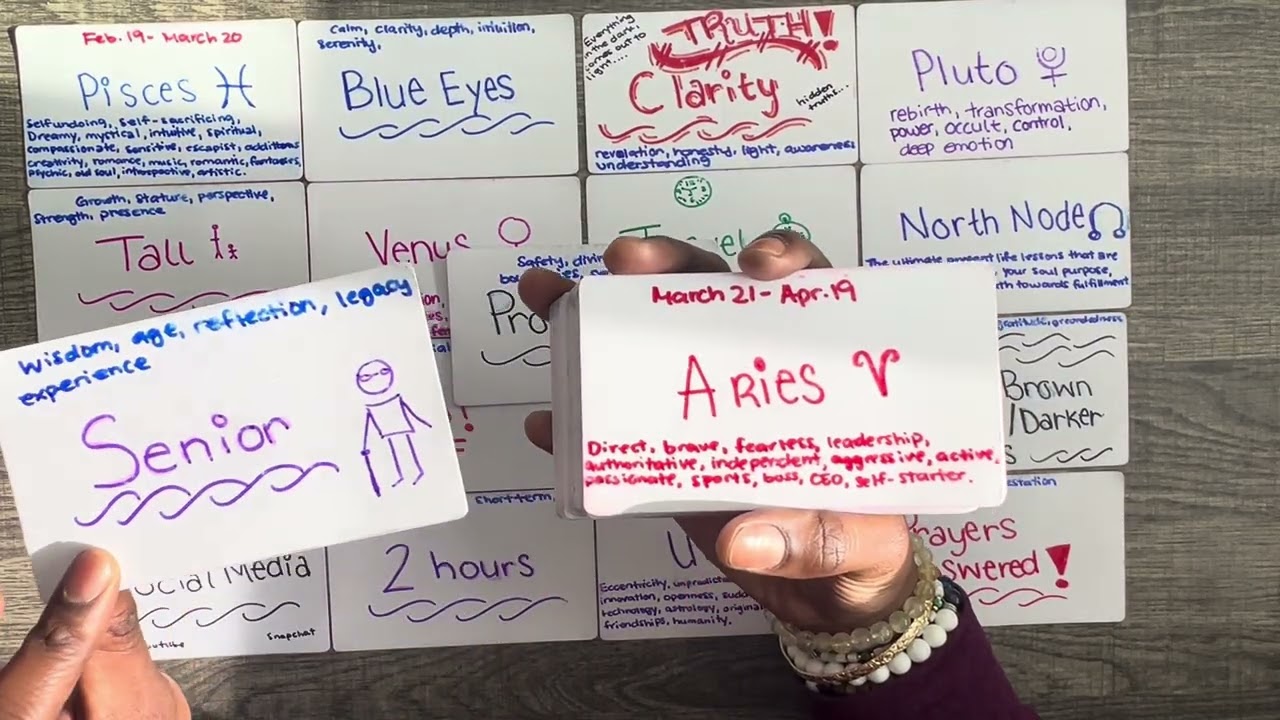 Feb. 19 - March 20
Pisces ♓
Selfundoing, Self-sacrificing,
Dreamy, mystical, intuitive, spiritual,
compassionate, sensitive, escapist, additions
creativity, romance, music, romamic, fantasies,
psychic, old soul, introspective, artistic.
Calm, clarity, depth, intuition,
Serenity,
Blue Eyes
Everything
in the dark,
comes out to
light....
TRUTH!
Clarity
hidden
truths...
revelation, honesty, light, awareness
understanding
Pluto
rebirth, transformation,
power, occult, control,
deep emotion
Growth, Stature, perspective,
Strength, presence
Tall
Venus
North Node
The ultimate present life lessons that are
your soul purpose,
towards fulfillment
Safety,
Wisdom, age, reflection, legacy
experience
Senior
March 21 - Apr. 19
Aries ♈
Direct, brave, fearless, leadership,
authoritative, independent, aggressive, active,
passionate, sports, boss, CEO, self-starter.
gratitude, groundedness
Brown
/Darker
Social Media
Snapchat
Short-term,
2 hours
Eccentricity,
innovation, openness,
technology, astrology,
friendships, humanity.
Prayers
Answered!